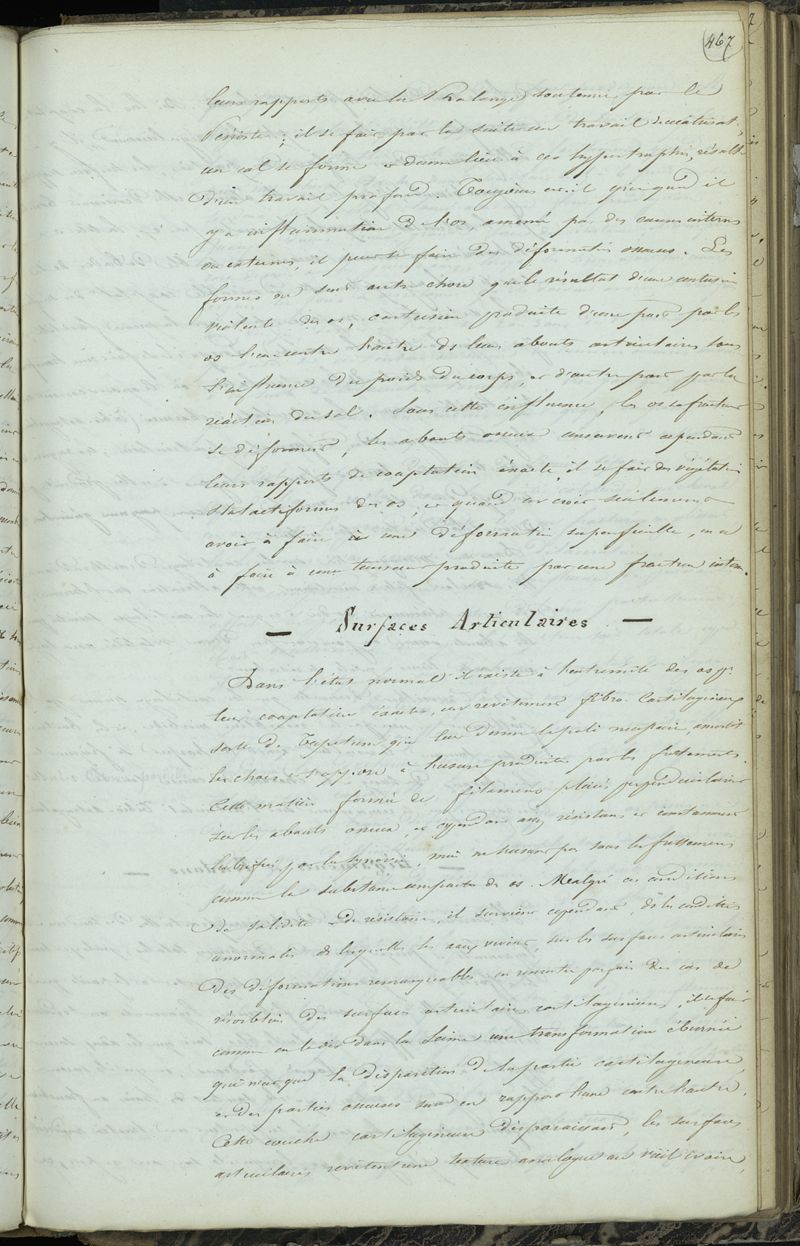 467
leurs rapports avec la Phalange soutenue par le
Périoste; il se fait par la suite un travail
un cal se forme et donne lieu à ces hypertrophies, résult
d'un travail profond. Toujours est-il que quand il
y a inflammation de l'os, amené par des causes internes
ou externes, il peut se faire des déformations osseuses. Les
formes ne sont autre chose que le résultat d'une contusion
violente des os, contusion produite d'une part par les
os l'un contre l'autre de leurs abouts articulaires sous
l'influence du poids du corps, et d'autre part par la
réaction du sol. Sous cette influence, les os se fracturent
se déforment, les abouts osseux conservent cependant
leurs rapports de coaptation exacte, il se fait des végétations
stalactiformes des os, et quand on croit seulement
avoir à faire à une déformation superficielle, on a
à faire à une tumeur produite par une fracture interne.
— Surfaces Articulaires —
Dans l'état normal il existe à l'extrémité des os pr
leur coaptation exacte, un revêtement fibro-cartilagineux
sorte de Tapetum qui leur donne le poli nécessaire, amortit
les chocs et s'oppose à l'usure produite par les frottements.
Cette matière formée de filaments placés perpendiculaires
sur les abouts osseux, est cependant assez résistante et constamment
lubrifiée par la synovie, mais ne s'use pas sous les frottements
comme la substance compacte des os. Malgré ces conditions
de solidité et de résistance, il survient cependant, des conditions
anormales desquelles les aux vivent, sur les surfaces articulaires
des déformations remarquables on rencontre parfois des cas de
résorbtion des surfaces articulaires cartilagineuses, il se fait
comme on le dit dans la Seime une transformation éburnée
qui n'est que la disparition de la partie cartilagineuse,
et des parties osseuses sont en rapport l'une contre l'autre.
Cette couche cartilagineuse disparaissant, les surfaces
articulaires revêtent une texture analogue au vieil ivoire,